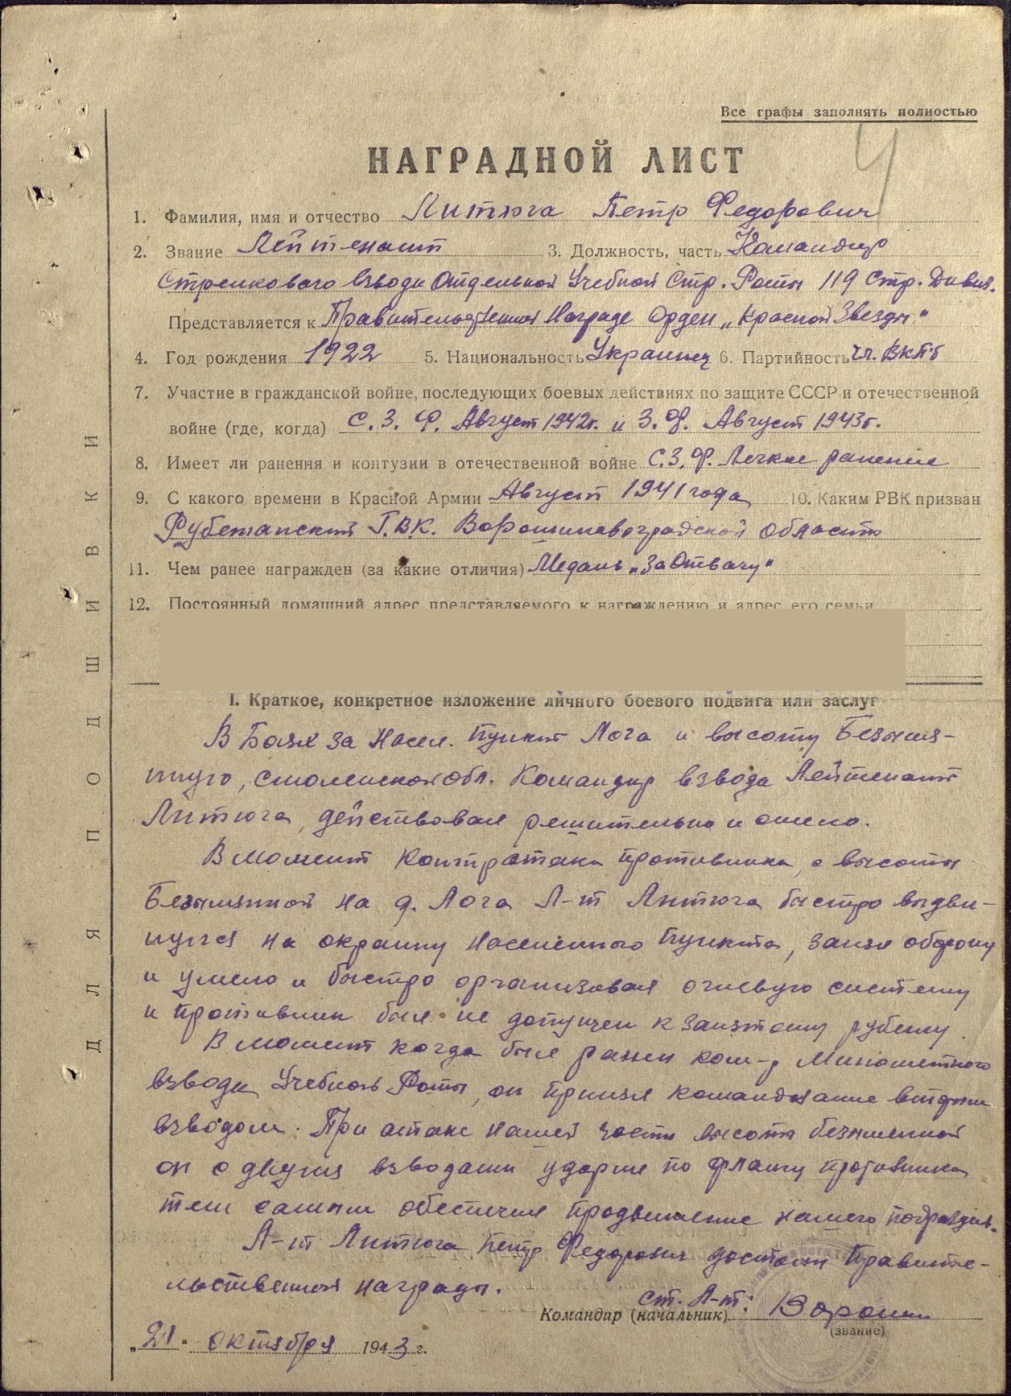 Все графы заполнять полностью
НАГРАДНОЙ ЛИСТ
1. Фамилия, имя и отчество Литюга Петр Федорович
2. Звание Лейтенант 3. Должность, часть Командир
Стрелкового взвода Отдельной Учебной Стр. Роты 119 Стр. Дивиз.
Представляется к Правительственной Награде Орден „Красной Звезды"
4. Год рождения 1922 5. Национальность Украинец 6. Партийность Чл. ВКПб
7. Участие в гражданской войне, последующих боевых действиях по защите СССР и отечественной
войне (где, когда) С. З. Ф. Август 1942г. и З. Ф. Август 1943г.
8. Имеет ли ранення и контузии в отечественной войне С.З.Ф. Легкое ранение
9. С какого времени в Красной Армии Август 1941 года 10. Каким РВК призван
Рубежанский Г.В.К. Ворошиловоградской области
11. Чем ранее награжден (за какие отличия) Медаль „За Отвагу"
12. Постоянный домашний адрес представляемого к награждению и адрес его семьи
I. Краткое, конкретное изложение личного боевого подвига или заслуг
В Боях за Насел. Пункт Лога и высоту Безымя-
нную, Смоленской обл. Командир взвода Лейтенант
Литюга, действовал решительно и смело.
В момент контратаки противника, с высоты
Безымянной на д. Лога Л-т Литюга быстро выдви-
нулся на окраину Населенного Пункта, занял оборону
и умело и быстро организовал огневую систему
и противник был не допущен к занятому рубежу.
В момент когда был ранен ком-р Минометного
взвода Учебной Роты, он принял командование вторым
взводом. При атаке нашей части высоты безыменной
он с двумя взводами ударил по флангу противника
тем самым обеспечил продвижение нашего подраздел.
Л-т Литюга Петр Федорович достоин Правите-
льственной награды.
ст. Л-т:
Командир (начальник) Воронин
(звание)
„21" октября 1943 г.
4
ДЛЯ ПОДШИВКИ